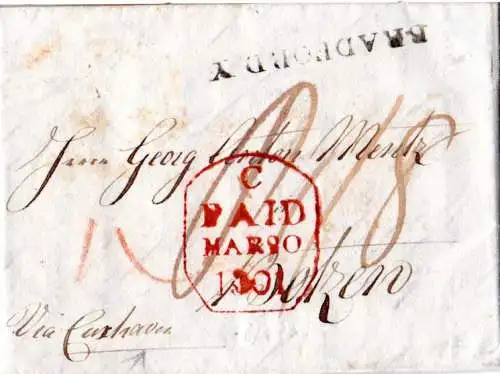 BRADFORD Y
Herrn Georg Anton Mentz
C
PAID
MAR 30
1801
Botzen
Via Cuxhaven